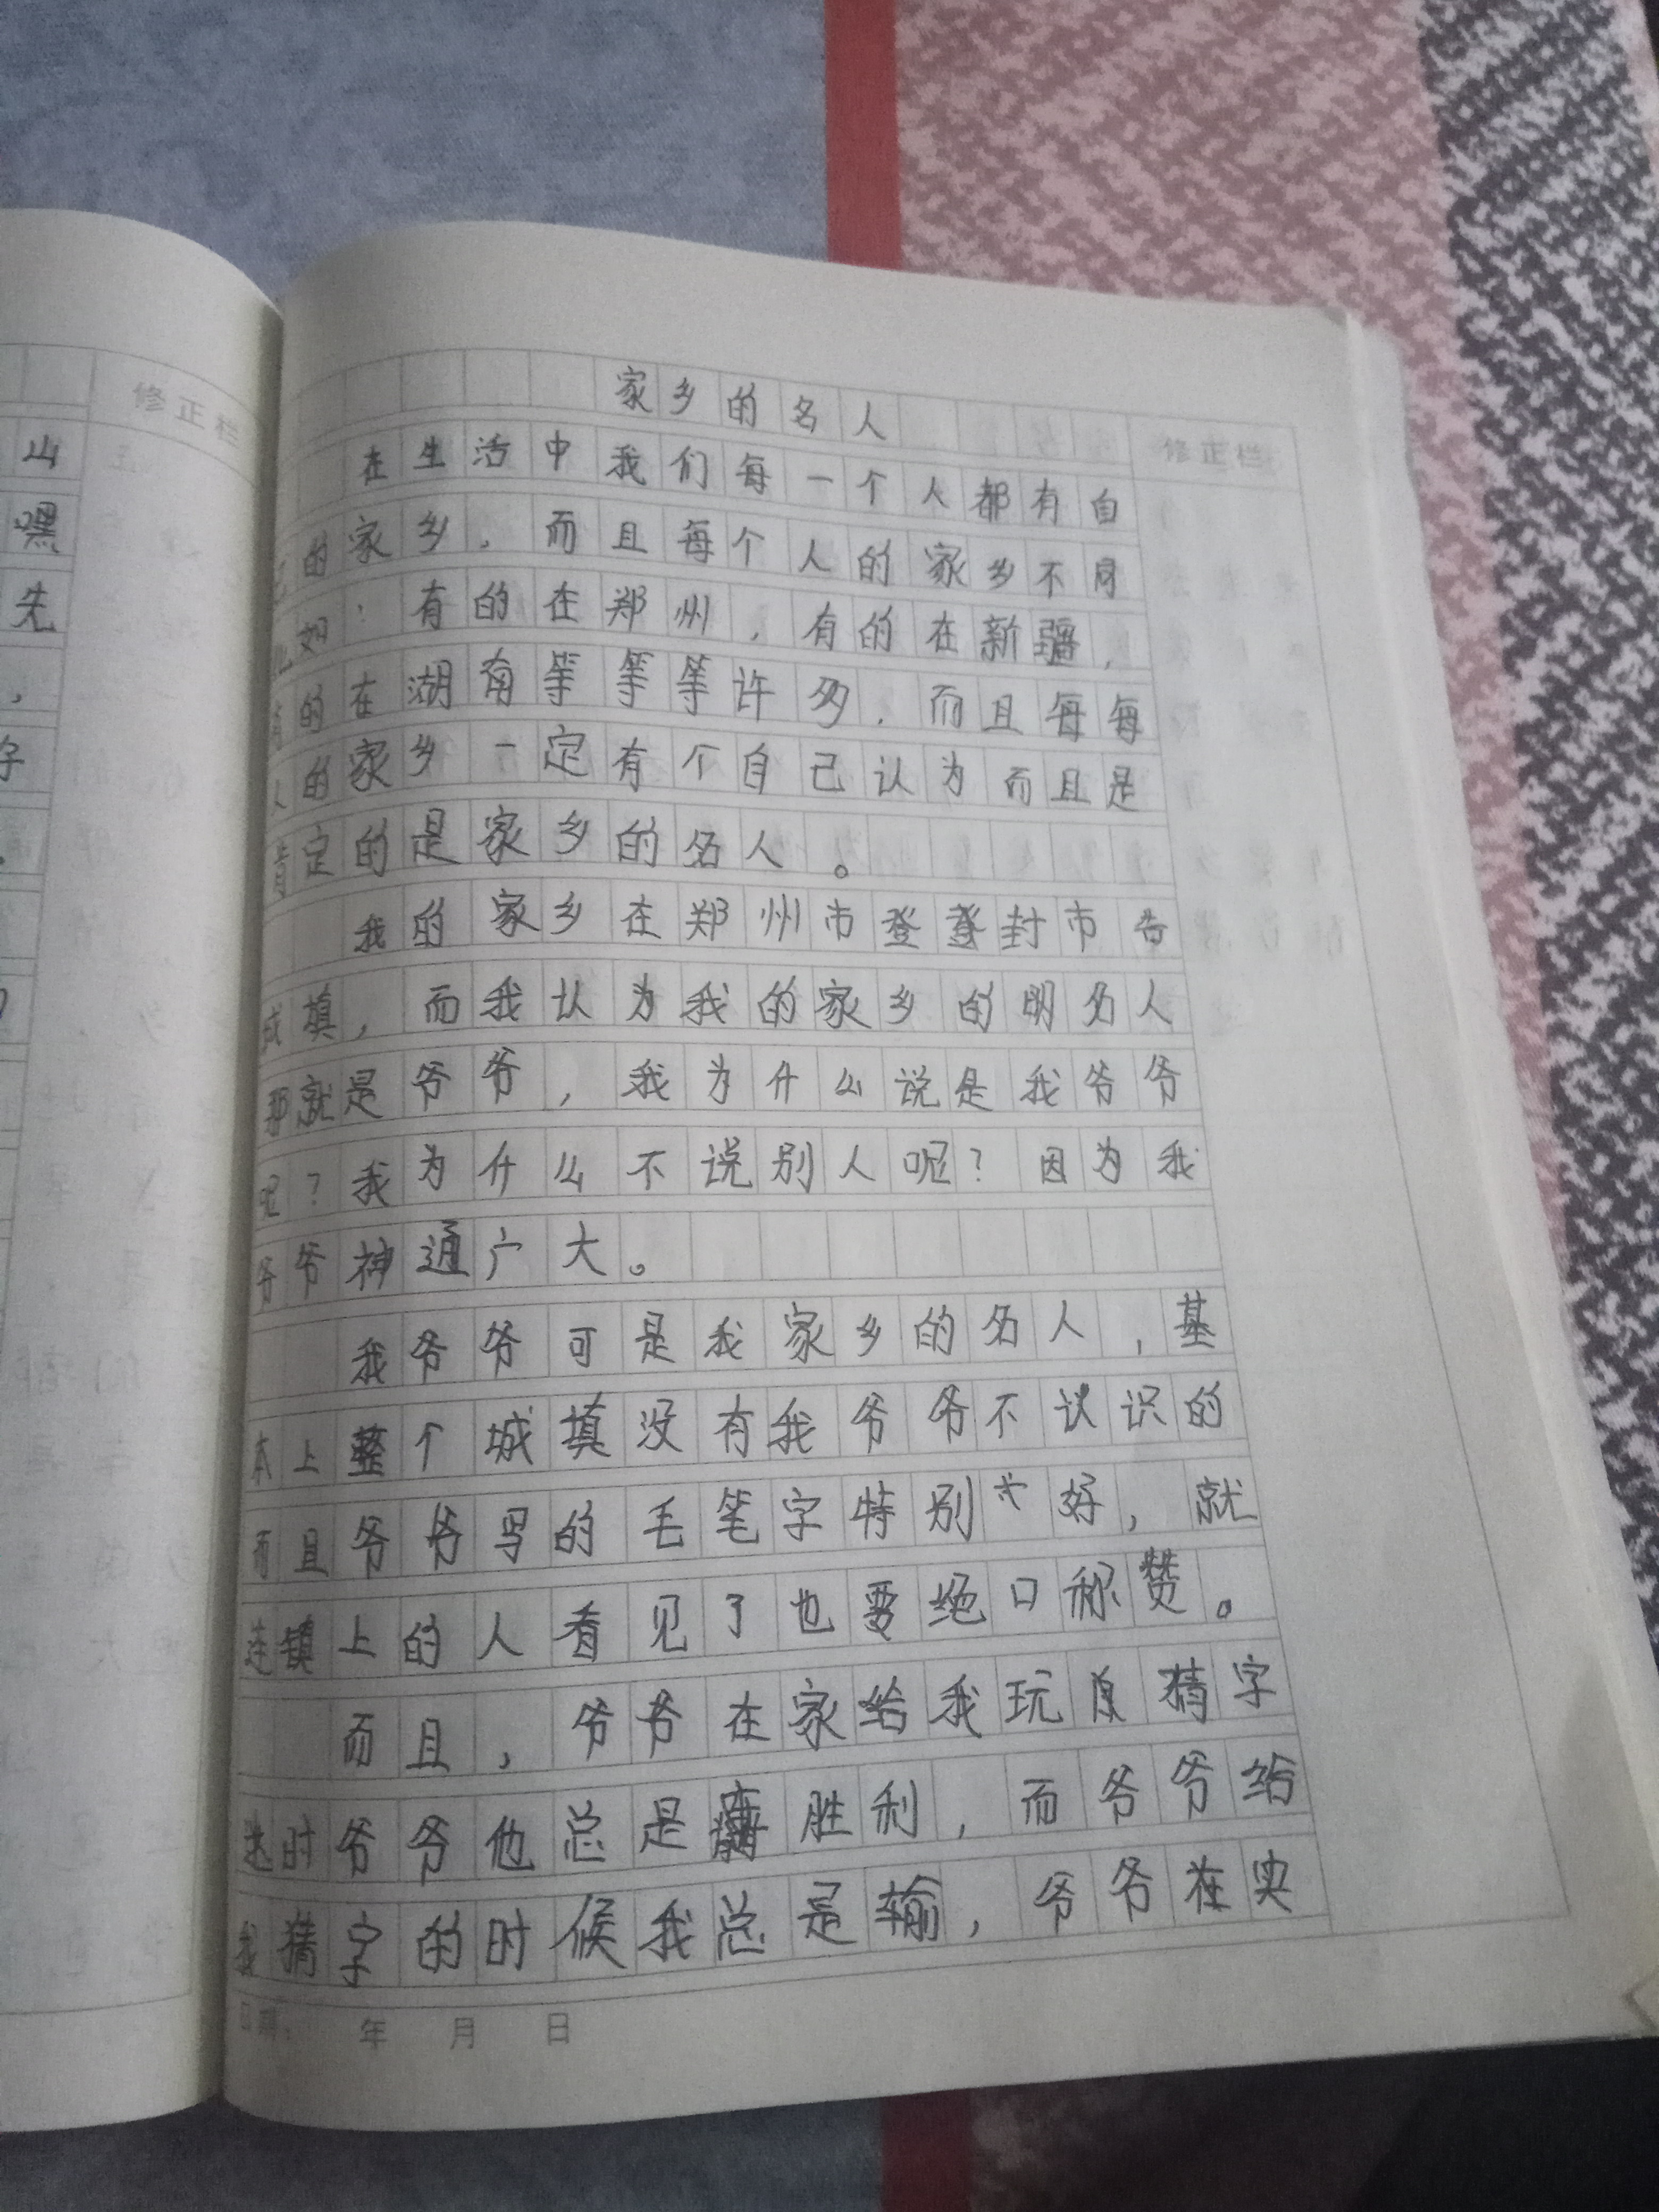 山
嘿
先
，
字
修正栏
家乡的名人
修正栏
在生活中我们每一个人都有自
的家乡，而且每个人的家乡不同
比如：有的在郑州，有的在新疆，
有的在湖南等等等许多，而且每每
人的家乡一定有个自己认为而且是
肯定的是家乡的名人。
我的家乡在郑州市登登封市告
成填，而我认为我的家乡的明名人
那就是爷爷，我为什么说是我爷爷
呢？我为什么不说别人呢？因为我
爷爷神通广大。
我爷爷可是我家乡的名人，基
本上整个城填没有我爷爷不认识的
而且爷爷写的毛笔字特别好，就
连镇上的人看见了也要绝口称赞。
而且，爷爷在家给我玩猜字
迷时爷爷他总是胜利，而爷爷给
我猜字的时候我总是输，爷爷在
日期： 年 月 日